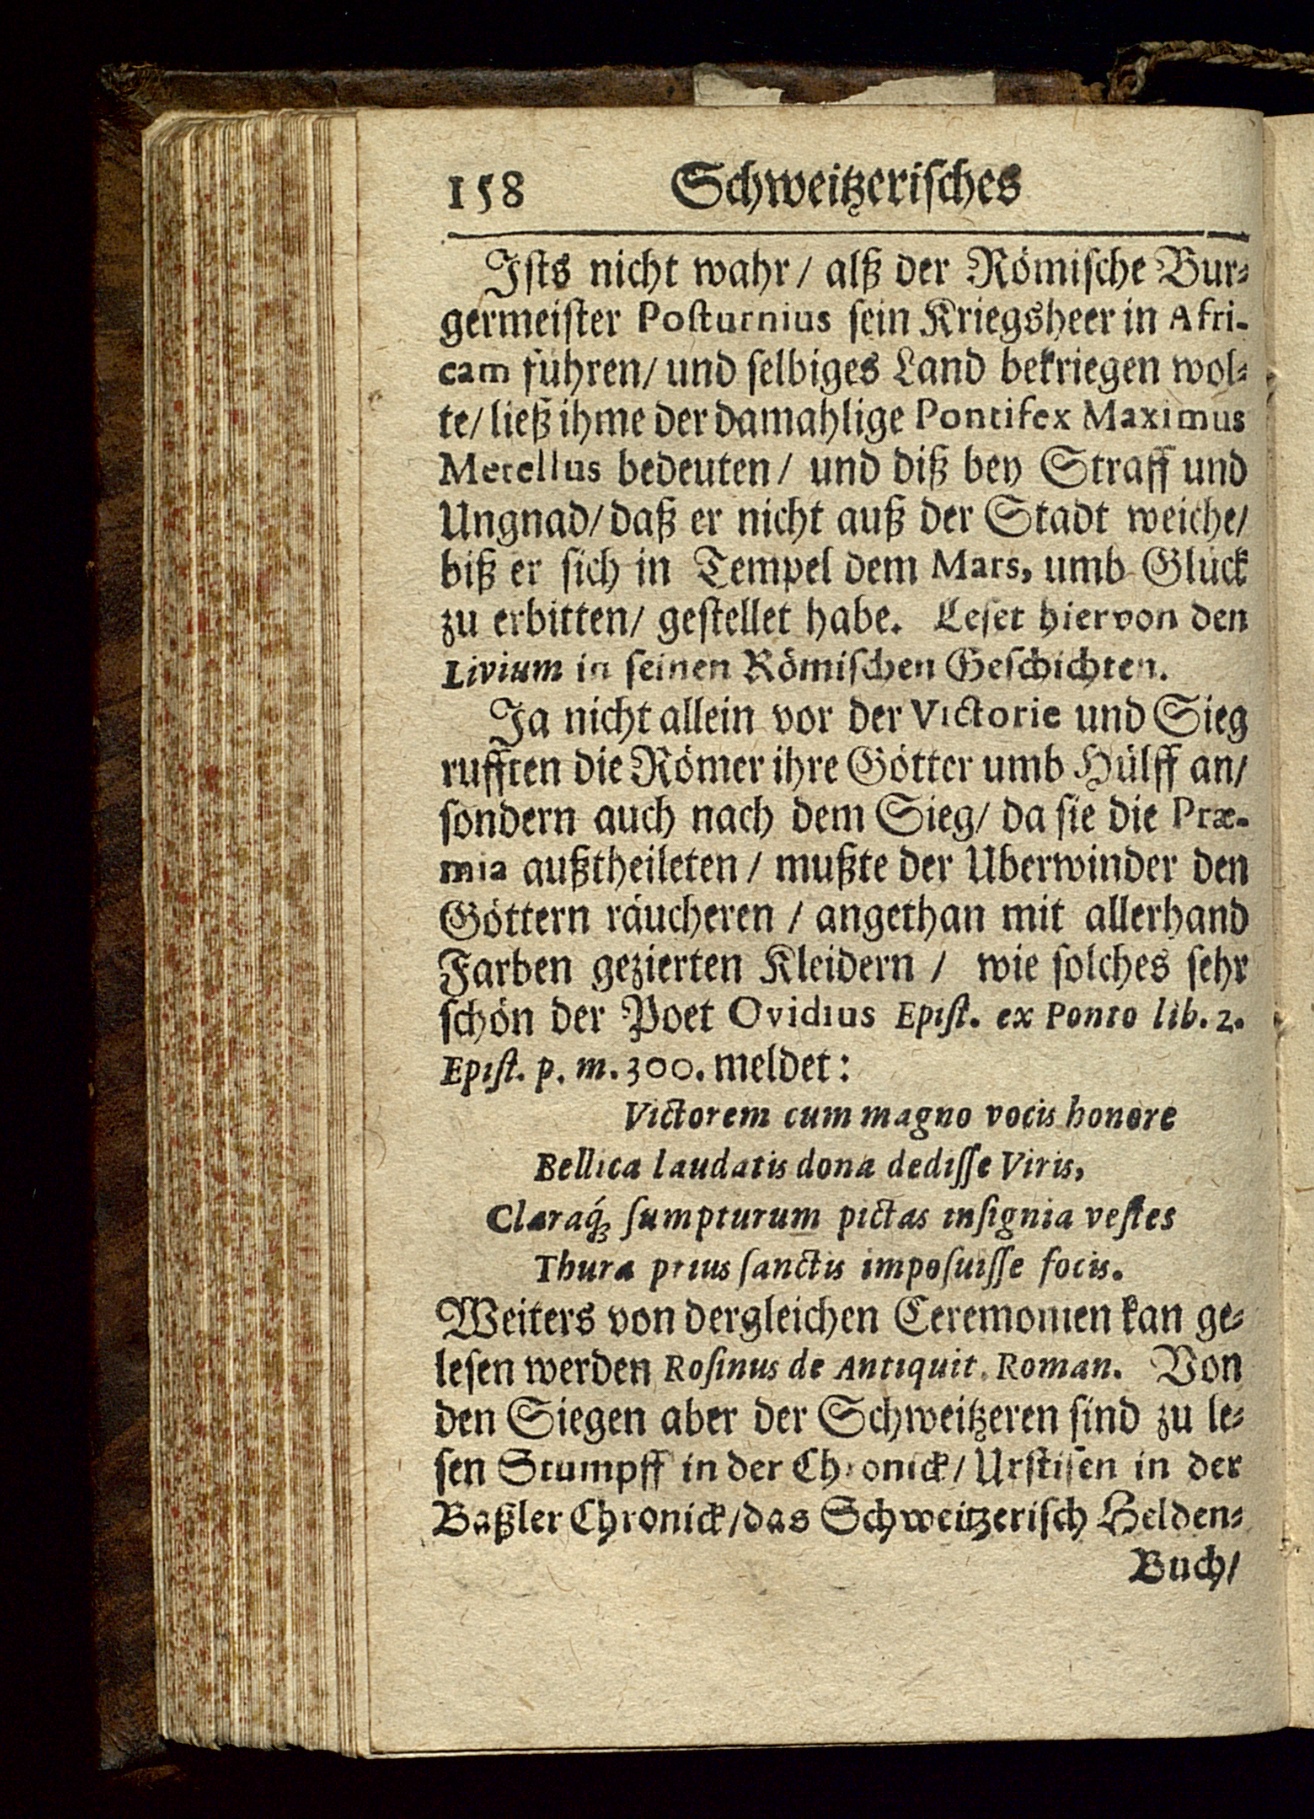 158 Schweitzerisches
Ists nicht wahr/ alß der Römische Bur-
germeister Posturnius sein Kriegsheer in Afri-
cam führen/ und selbiges Land bekriegen wol-
te/ ließ ihme der damahlige Pontifex Maximus
Metellus bedeuten/ und diß bey Straff und
Ungnad/ daß er nicht auß der Stadt weiche/
biß er sich in Tempel dem Mars, umb Glück
zu erbitten/ gestellet habe. Leset hiervon den
Livium in seinen Römischen Geschichten.
Ja nicht allein vor der Victorie und Sieg
rufften die Römer ihre Götter umb Hülff an/
sondern auch nach dem Sieg/ da sie die Præ-
mia außtheileten / mußte der Uberwinder den
Göttern räucheren / angethan mit allerhand
Farben gezierten Kleidern / wie solches sehr
schön der Poet Ovidius Epist. ex Ponto lib. 2.
Epist. p. m. 300. meldet:
Victorem cum magno vocis honore
Bellica laudatis dona dedisse Viris,
Claraq́; sumpturum pictas insignia vestes
Thura prius sanctis imposuisse focis.
Weiters von dergleichen Ceremonien kan ge-
lesen werden Rosinus de Antiquit. Roman. Von
den Siegen aber der Schweitzeren sind zu le-
sen Stumpff in der Chronick/ Urstisen in der
Baßler Chronick/ das Schweitzerisch Helden-
Buch/